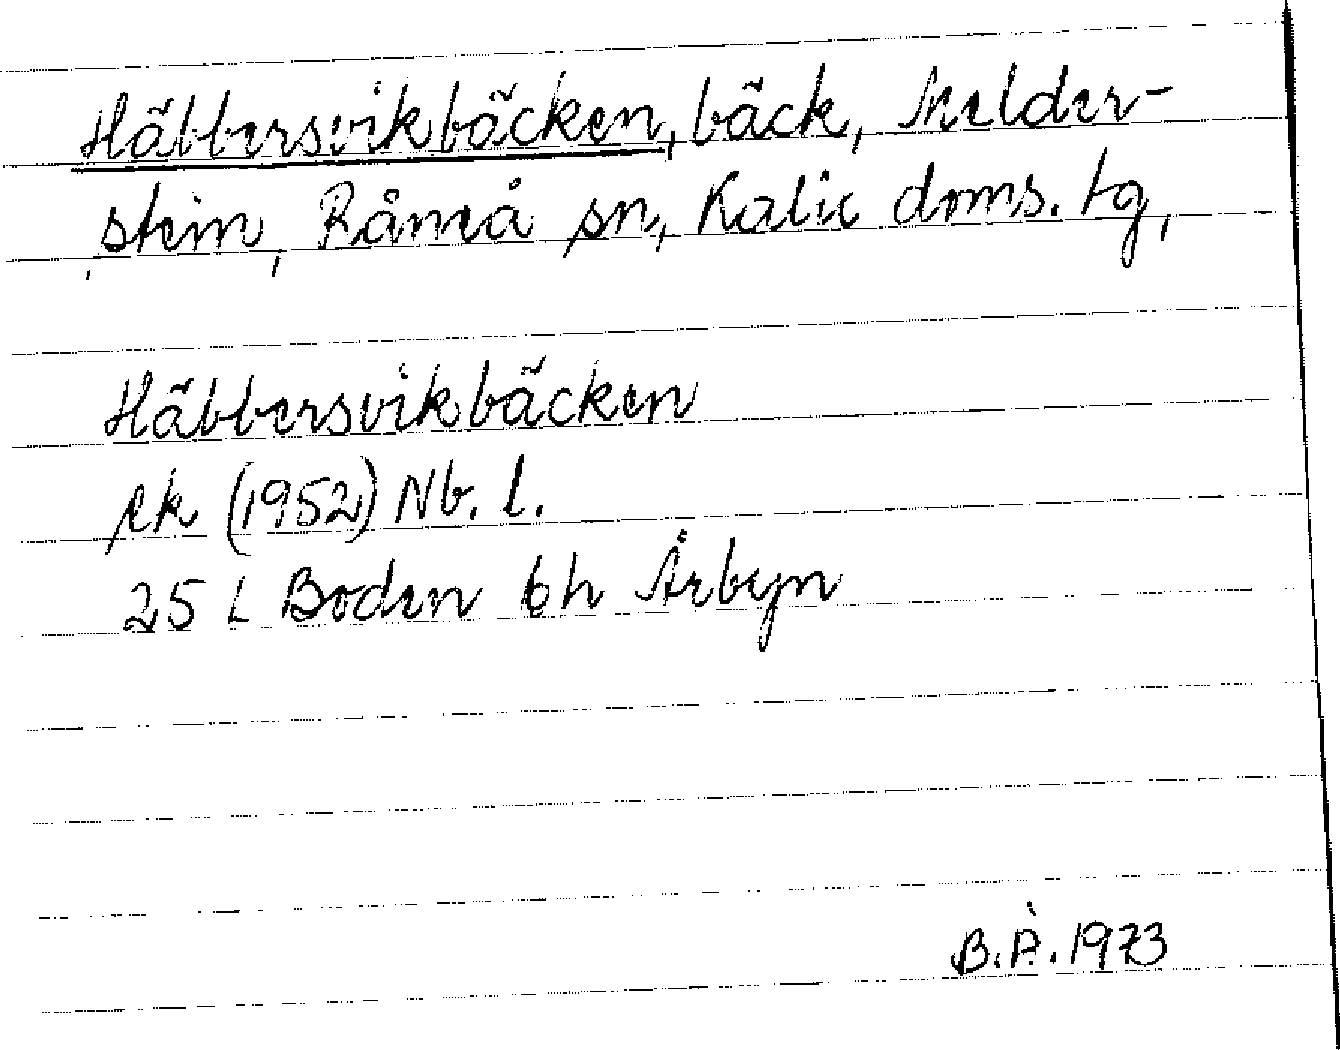 Häbbersvikbäcken, bäck, Melder-
stein, Råneå sn, Kalix doms. tg,
Häbbersvikbäcken
ek (1952) Nb. l.
25 L Boden 6h Ärbyn
B.Å. 1973